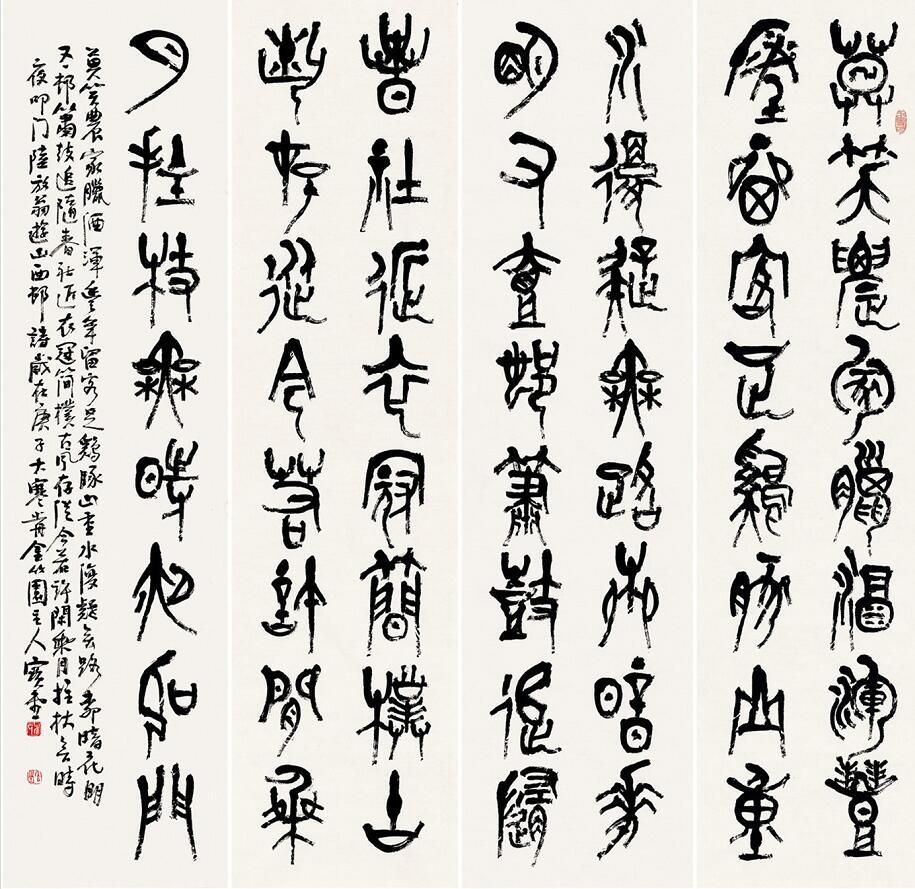 莫笑農家臘酒渾豐
年留客足雞豚山重
水復疑無路柳暗花
明又壹邨簫鼓追隨
春社近衣冠簡樸古
風存從今若許閒乘
月拄杖無時夜叩門
莫笑農家臘酒渾豐年留客足鷄豚山重水復疑無路柳暗花明
又一邨簫鼓追隨春社近衣冠簡樸古風存從今若許閑乘月拄杖無時
夜叩門陸放翁遊山西邨詩歲在庚子大寒書金竹園主人寶